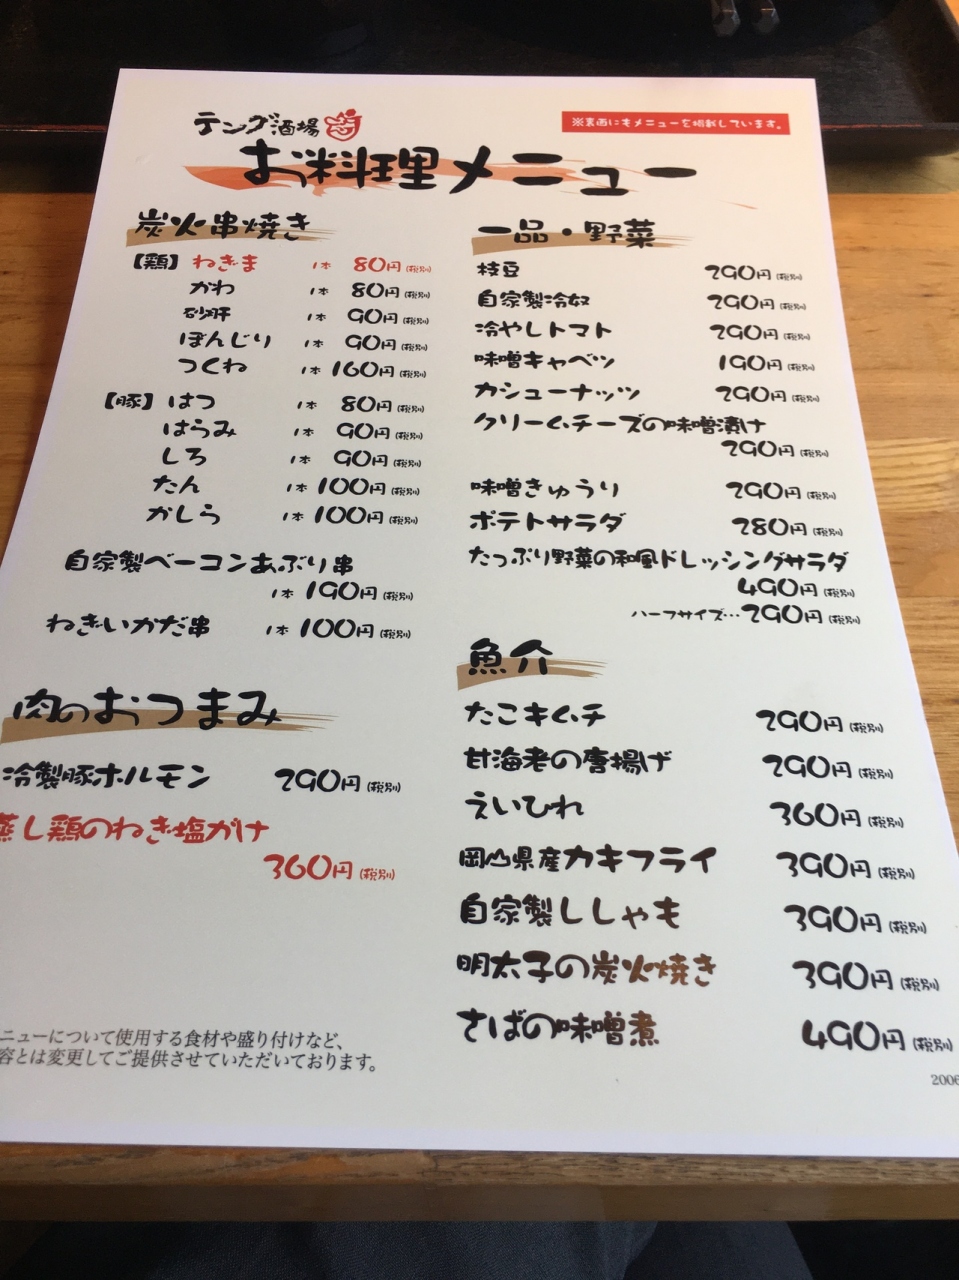 テング酒場
※裏面にもメニューを掲載しています。
お料理メニュー
炭火串焼き
【鶏】ねぎま 1本 80円(税別)
かわ 1本 80円(税別)
砂肝 1本 90円(税別)
ぼんじり 1本 90円(税別)
つくね 1本 160円(税別)
【豚】はつ 1本 80円(税別)
はらみ 1本 90円(税別)
しろ 1本 90円(税別)
たん 1本 100円(税別)
かしら 1本 100円(税別)
自家製ベーコンあぶり串
1本 190円(税別)
ねぎいかだ串 1本 100円(税別)
肉のおつまみ
冷製豚ホルモン 290円(税別)
蒸し鶏のねぎ塩がけ
360円(税別)
ニューについて使用する食材や盛り付けなど、
容とは変更してご提供させていただいております。
一品・野菜
枝豆 290円(税別)
自家製冷奴 290円(税別)
冷やしトマト 290円(税別)
味噌キャベツ 190円(税別)
カシューナッツ 290円(税別)
クリームチーズの味噌漬け
290円(税別)
味噌きゅうり 290円(税別)
ポテトサラダ 280円(税別)
たっぷり野菜の和風ドレッシングサラダ
490円(税別)
ハーフサイズ…290円(税別)
魚介
たこキムチ 290円(税別)
甘海老の唐揚げ 290円(税別)
えいひれ 360円(税別)
岡山県産カキフライ 390円(税別)
自家製ししゃも 390円(税別)
明太子の炭火焼き 390円(税別)
さばの味噌煮 490円(税別)
2006